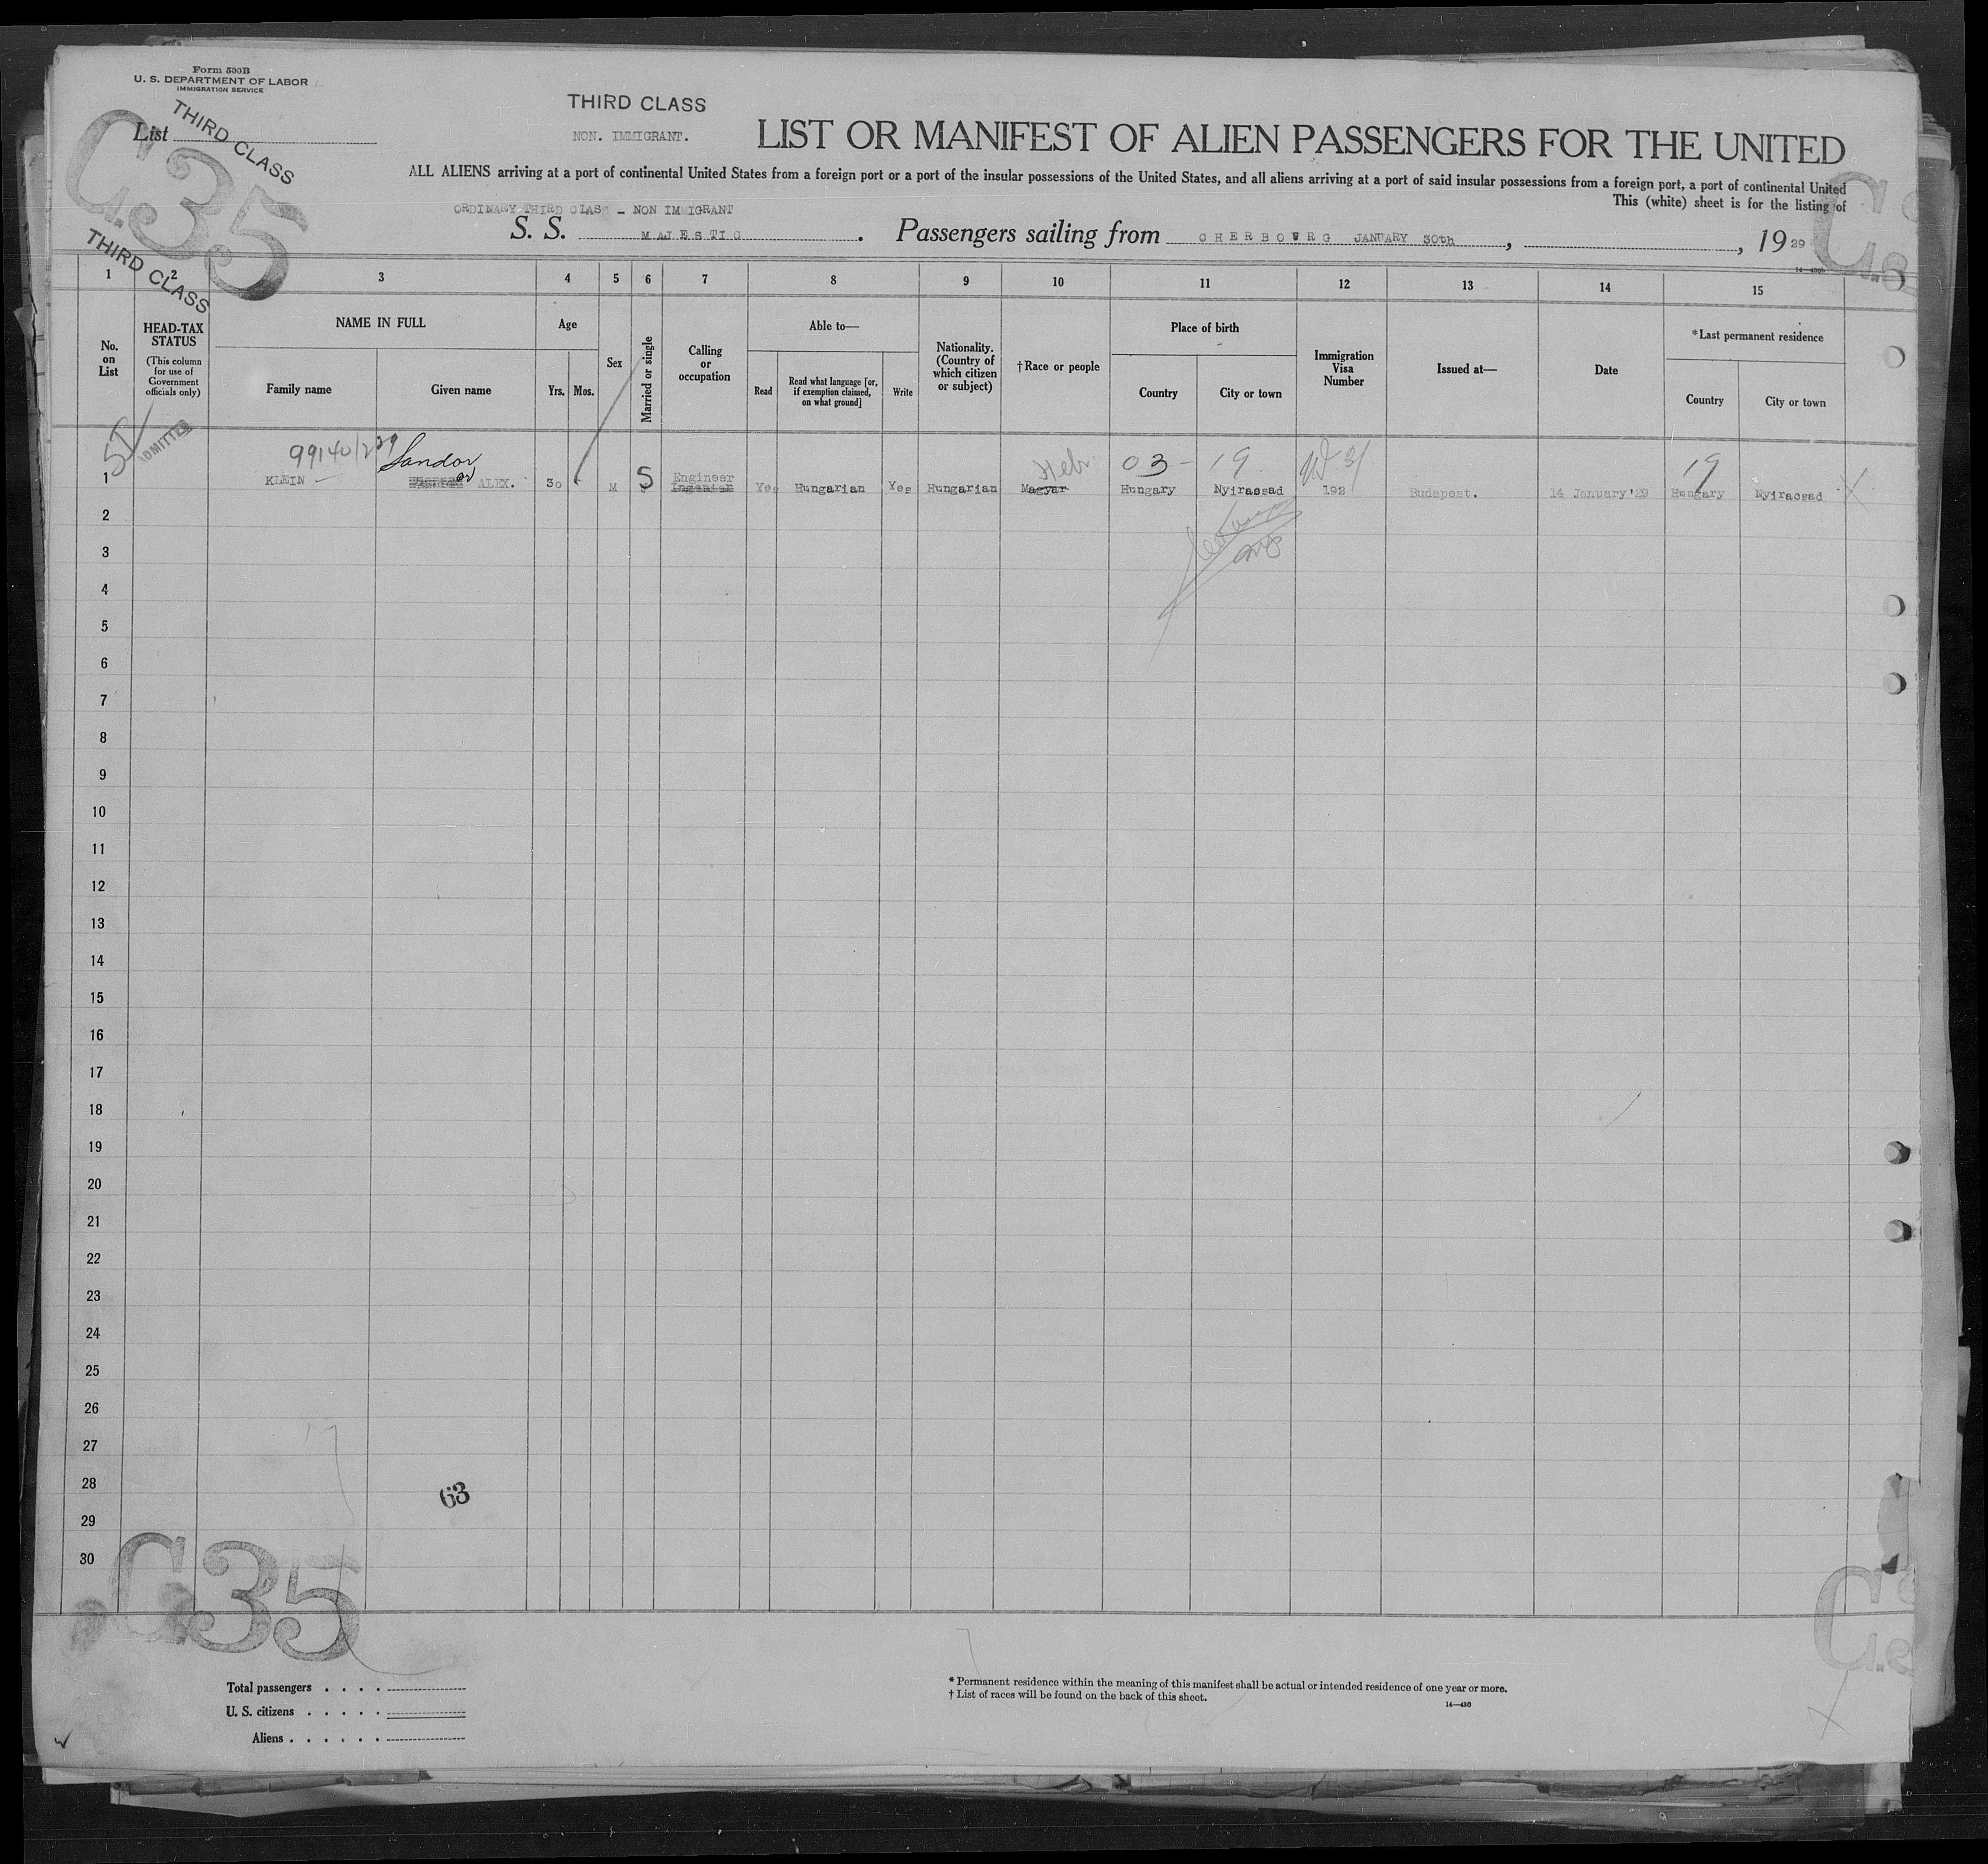 Form 500B
U. S. DEPARTMENT OF LABOR
IMMIGRATION SERVICE
List
THIRD CLASS
C.35
THIRD CLASS
THIRD CLASS
NON. IMMIGRANT.
LIST OR MANIFEST OF ALIEN PASSENGERS FOR THE UNITED
ALL ALIENS arriving at a port of continental United States from a foreign port or a port of the insular possessions of the United States, and all aliens arriving at a port of said insular possessions from a foreign port, a port of continental United
This (white) sheet is for the listing of
ORDINARY THIRD CLASS - NON IMMIGRANT
S. S. MAJESTIC. Passengers sailing from CHERBOVRG JANUARY 30th, , 19 29
1 2 3 4 5 6 7 8 9 10 11 12 13 14 15
No. on List
HEAD-TAX STATUS
(This column for use of Government officials only)
NAME IN FULL
Family name
Given name
Age
Yrs.
Mos.
Sex
Married or single
Calling or occupation
Able to—
Read
Read what language [or, if exemption claimed, on what ground]
Write
Nationality. (Country of which citizen or subject)
†Race or people
Place of birth
Country
City or town
Immigration Visa Number
Issued at—
Date
*Last permanent residence
Country
City or town
SI
ADMITTED
Sandor or
Hebr.
03- 19 19
Engineer
1 KLEIN ALEX. 30 M S Ingenier Yes Hungarian Yes Hungarian Magyar Hungary Nyiracsad 192 Budapest. 14 January'29 Hungary Nyiracsad
2
3
4
5
6
7
8
9
10
11
12
13
14
15
16
17
18
19
20
21
22
23
24
25
26
27
28
63
29
30
C.35
Total passengers . . . .
U. S. citizens . . . . .
Aliens . . . . . .
* Permanent residence within the meaning of this manifest shall be actual or intended residence of one year or more.
† List of races will be found on the back of this sheet.
14—430